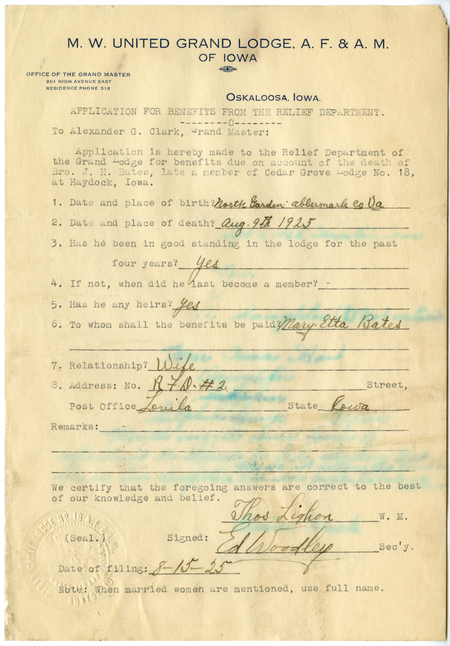 M. W. UNITED GRAND LODGE, A. F. & A. M.
OF IOWA
OFFICE OF THE GRAND MASTER
201 HIGH AVENUE EAST
RESIDENCE PHONE 516
OSKALOOSA, IOWA.
APPLICATION FOR BENEFITS FROM THE RELIEF DEPARTMENT.
--------O--------
To Alexander G. Clark, Grand Master:
Application is hereby made to the Relief Department of
the Grand Lodge for benefits due on account of the death of
Bro. J. H. Bates, late a member of Cedar Grove Lodge No. 18,
at Haydock, Iowa.
1. Date and place of birth? North Garden abbermarle co Va
2. Date and place of death? Aug. 9th 1925
3. Has he been in good standing in the lodge for the past
four years? Yes
4. If not, when did he last become a member? -
5. Has he any heirs? Yes
6. To whom shall the benefits be paid? Mary Etta Bates
7. Relationship? Wife
8. Address: No. R F D. #2 Street,
Post Office Lovila State Iowa
Remarks:
We certify that the foregoing answers are correct to the best
of our knowledge and belief.
Thos. Lighon W. M.
(Seal.) Signed: Ed Woodley Sec'y.
Date of filing: 8-15-25
Note: When married women are mentioned, use full name.